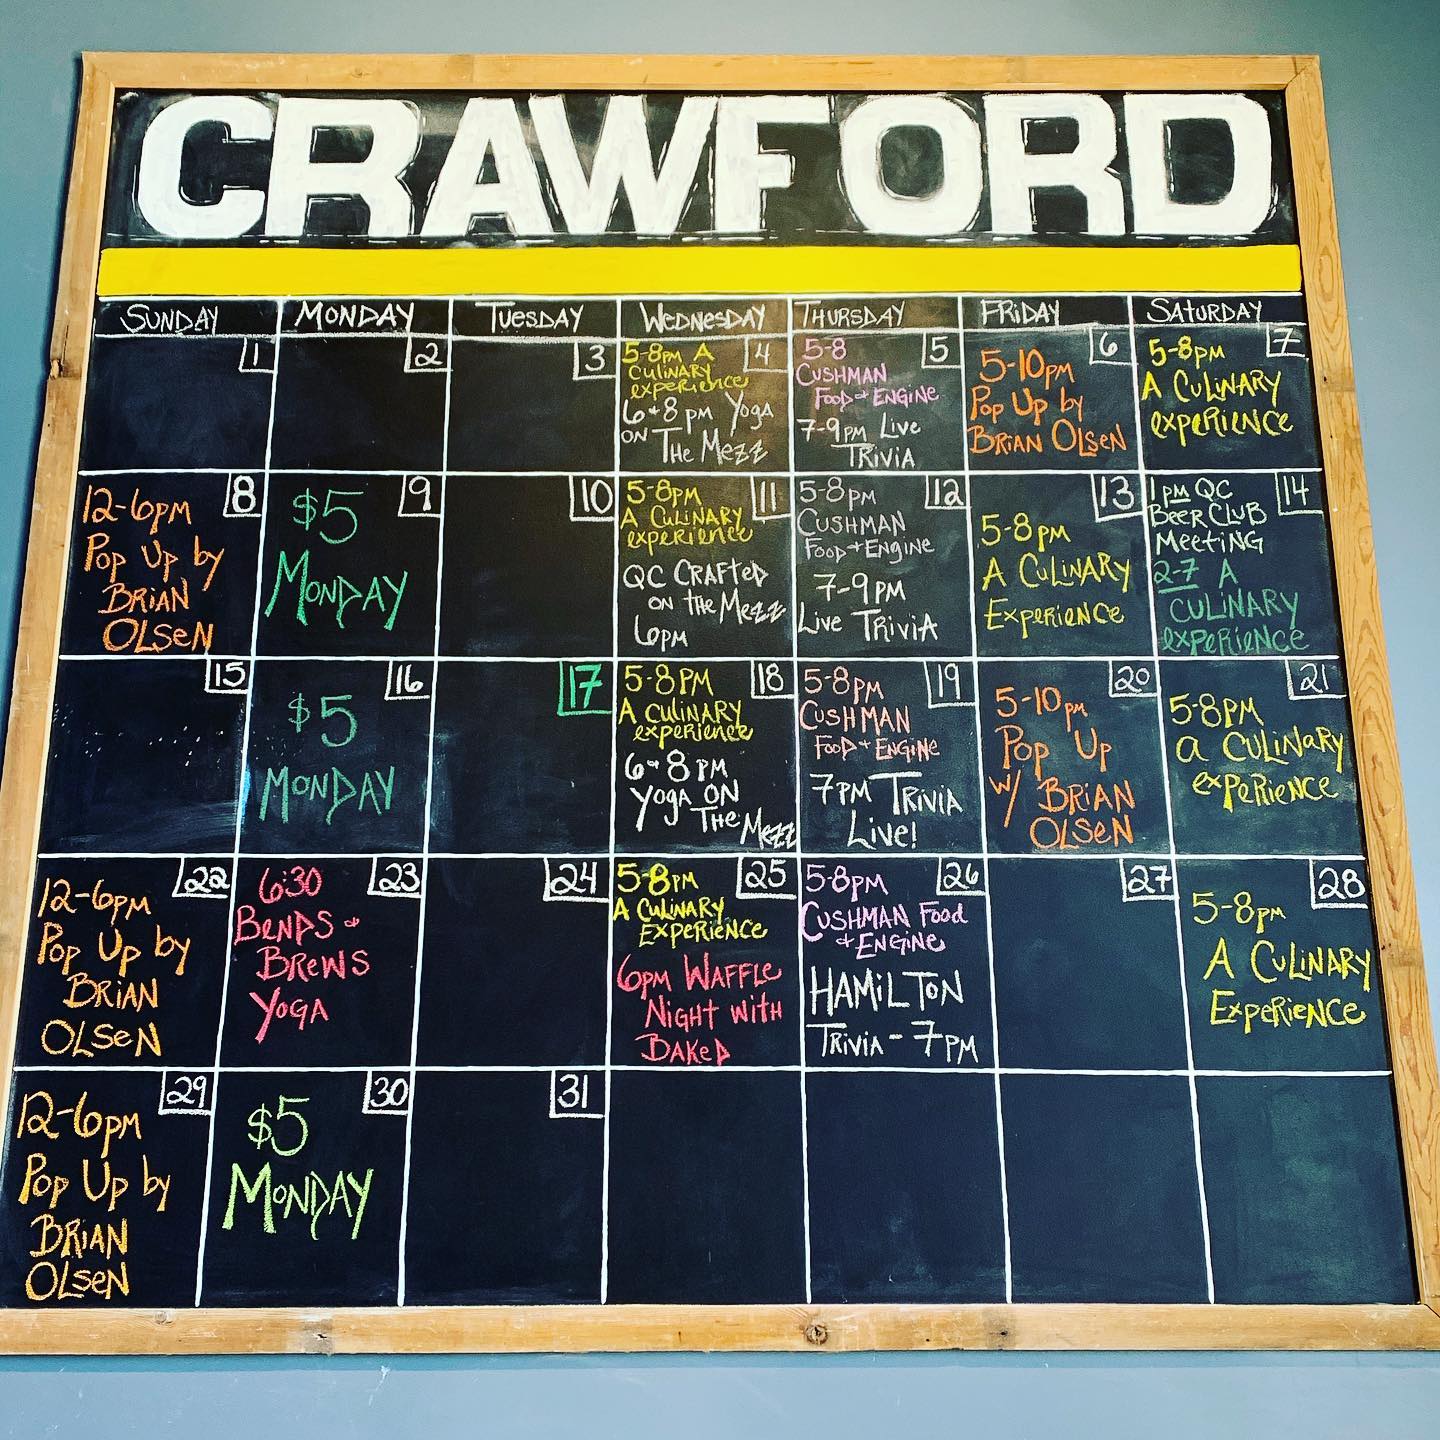 CRAWFORD
SUNDAY MONDAY TUESDAY WEDNESDAY THURSDAY FRIDAY SATURDAY
1
2
3
4
5-8pm A
CULINARY
experience
6+8 pm YOGA
ON THE MEZZ
5
5-8
CUSHMAN
FOOD + ENGINE
7-9pm Live
TRIVIA
6
5-10pm
Pop Up by
BRIAN OLSEN
7
5-8pm
A CULINARY
experience
8
12-6pm
Pop Up by
BRIAN
OLSEN
9
$5
MONDAY
10
11
5-8pm
A CULINARY
experience
QC CRAFTED
ON the Mezz
6pm
12
5-8pm
CUSHMAN
FOOD + ENGINE
7-9pm
Live TRIVIA
13
5-8pm
A CULINARY
EXPERIENCE
14
1pm QC
BEER CLUB
MEETING
2-7 A
CULINARY
experience
15
16
$5
MONDAY
17
18
5-8PM
A CULINARY
experience
6+8 PM
YOGA ON
THE MEZZ
19
5-8pm
CUSHMAN
FOOD + ENGINE
7PM TRIVIA
Live!
20
5-10pm
Pop Up
w/ BRIAN
OLSEN
21
5-8PM
a CULINARY
experience
22
12-6pm
Pop Up by
BRIAN
OLSEN
23
6:30
BENDS +
BREWS
YOGA
24
25
5-8pm
A CULINARY
EXPERIENCE
6pm WAFFLE
NIGHT WITH
BAKED
26
5-8pm
CUSHMAN Food
+ ENGINE
HAMILTON
TRIVIA - 7PM
27
28
5-8pm
A CULINARY
EXPERIENCE
29
12-6pm
Pop Up by
BRIAN
OLSEN
30
$5
MONDAY
31